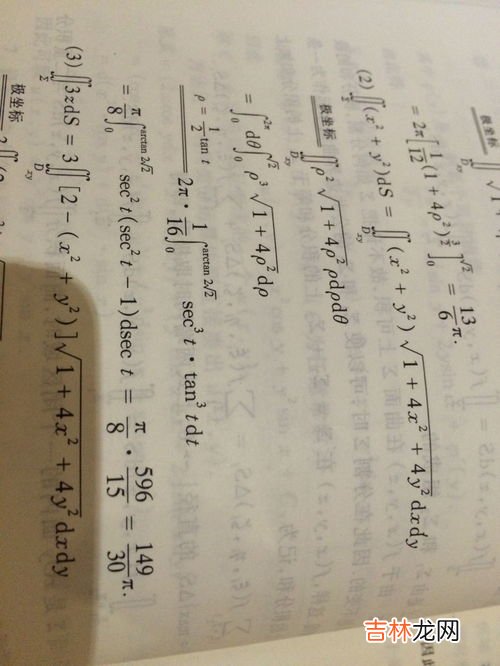 极坐标
= 2π[1/12 (1+4ρ²)^{3/2}]_0^{√2} = 13/6 π.
(2) ∬_Σ (x²+y²)dS = ∬_{D_xy} (x²+y²)√(1+4x²+4y²) dxdy
极坐标 ∬_{D_xy} ρ²√(1+4ρ²) ρdρdθ
= ∫_0^{2π} dθ ∫_0^{√2} ρ³√(1+4ρ²) dρ
ρ = 1/2 tan t 2π · 1/16 ∫_0^{arctan 2√2} sec³t · tan³t dt
= π/8 ∫_0^{arctan 2√2} sec²t(sec²t − 1)dsec t = π/8 · 596/15 = 149/30 π.
(3) ∬_Σ 3zdS = 3∬_{D_xy} [2 − (x²+y²)]√(1+4x²+4y²) dxdy
极坐标
吉林龙网